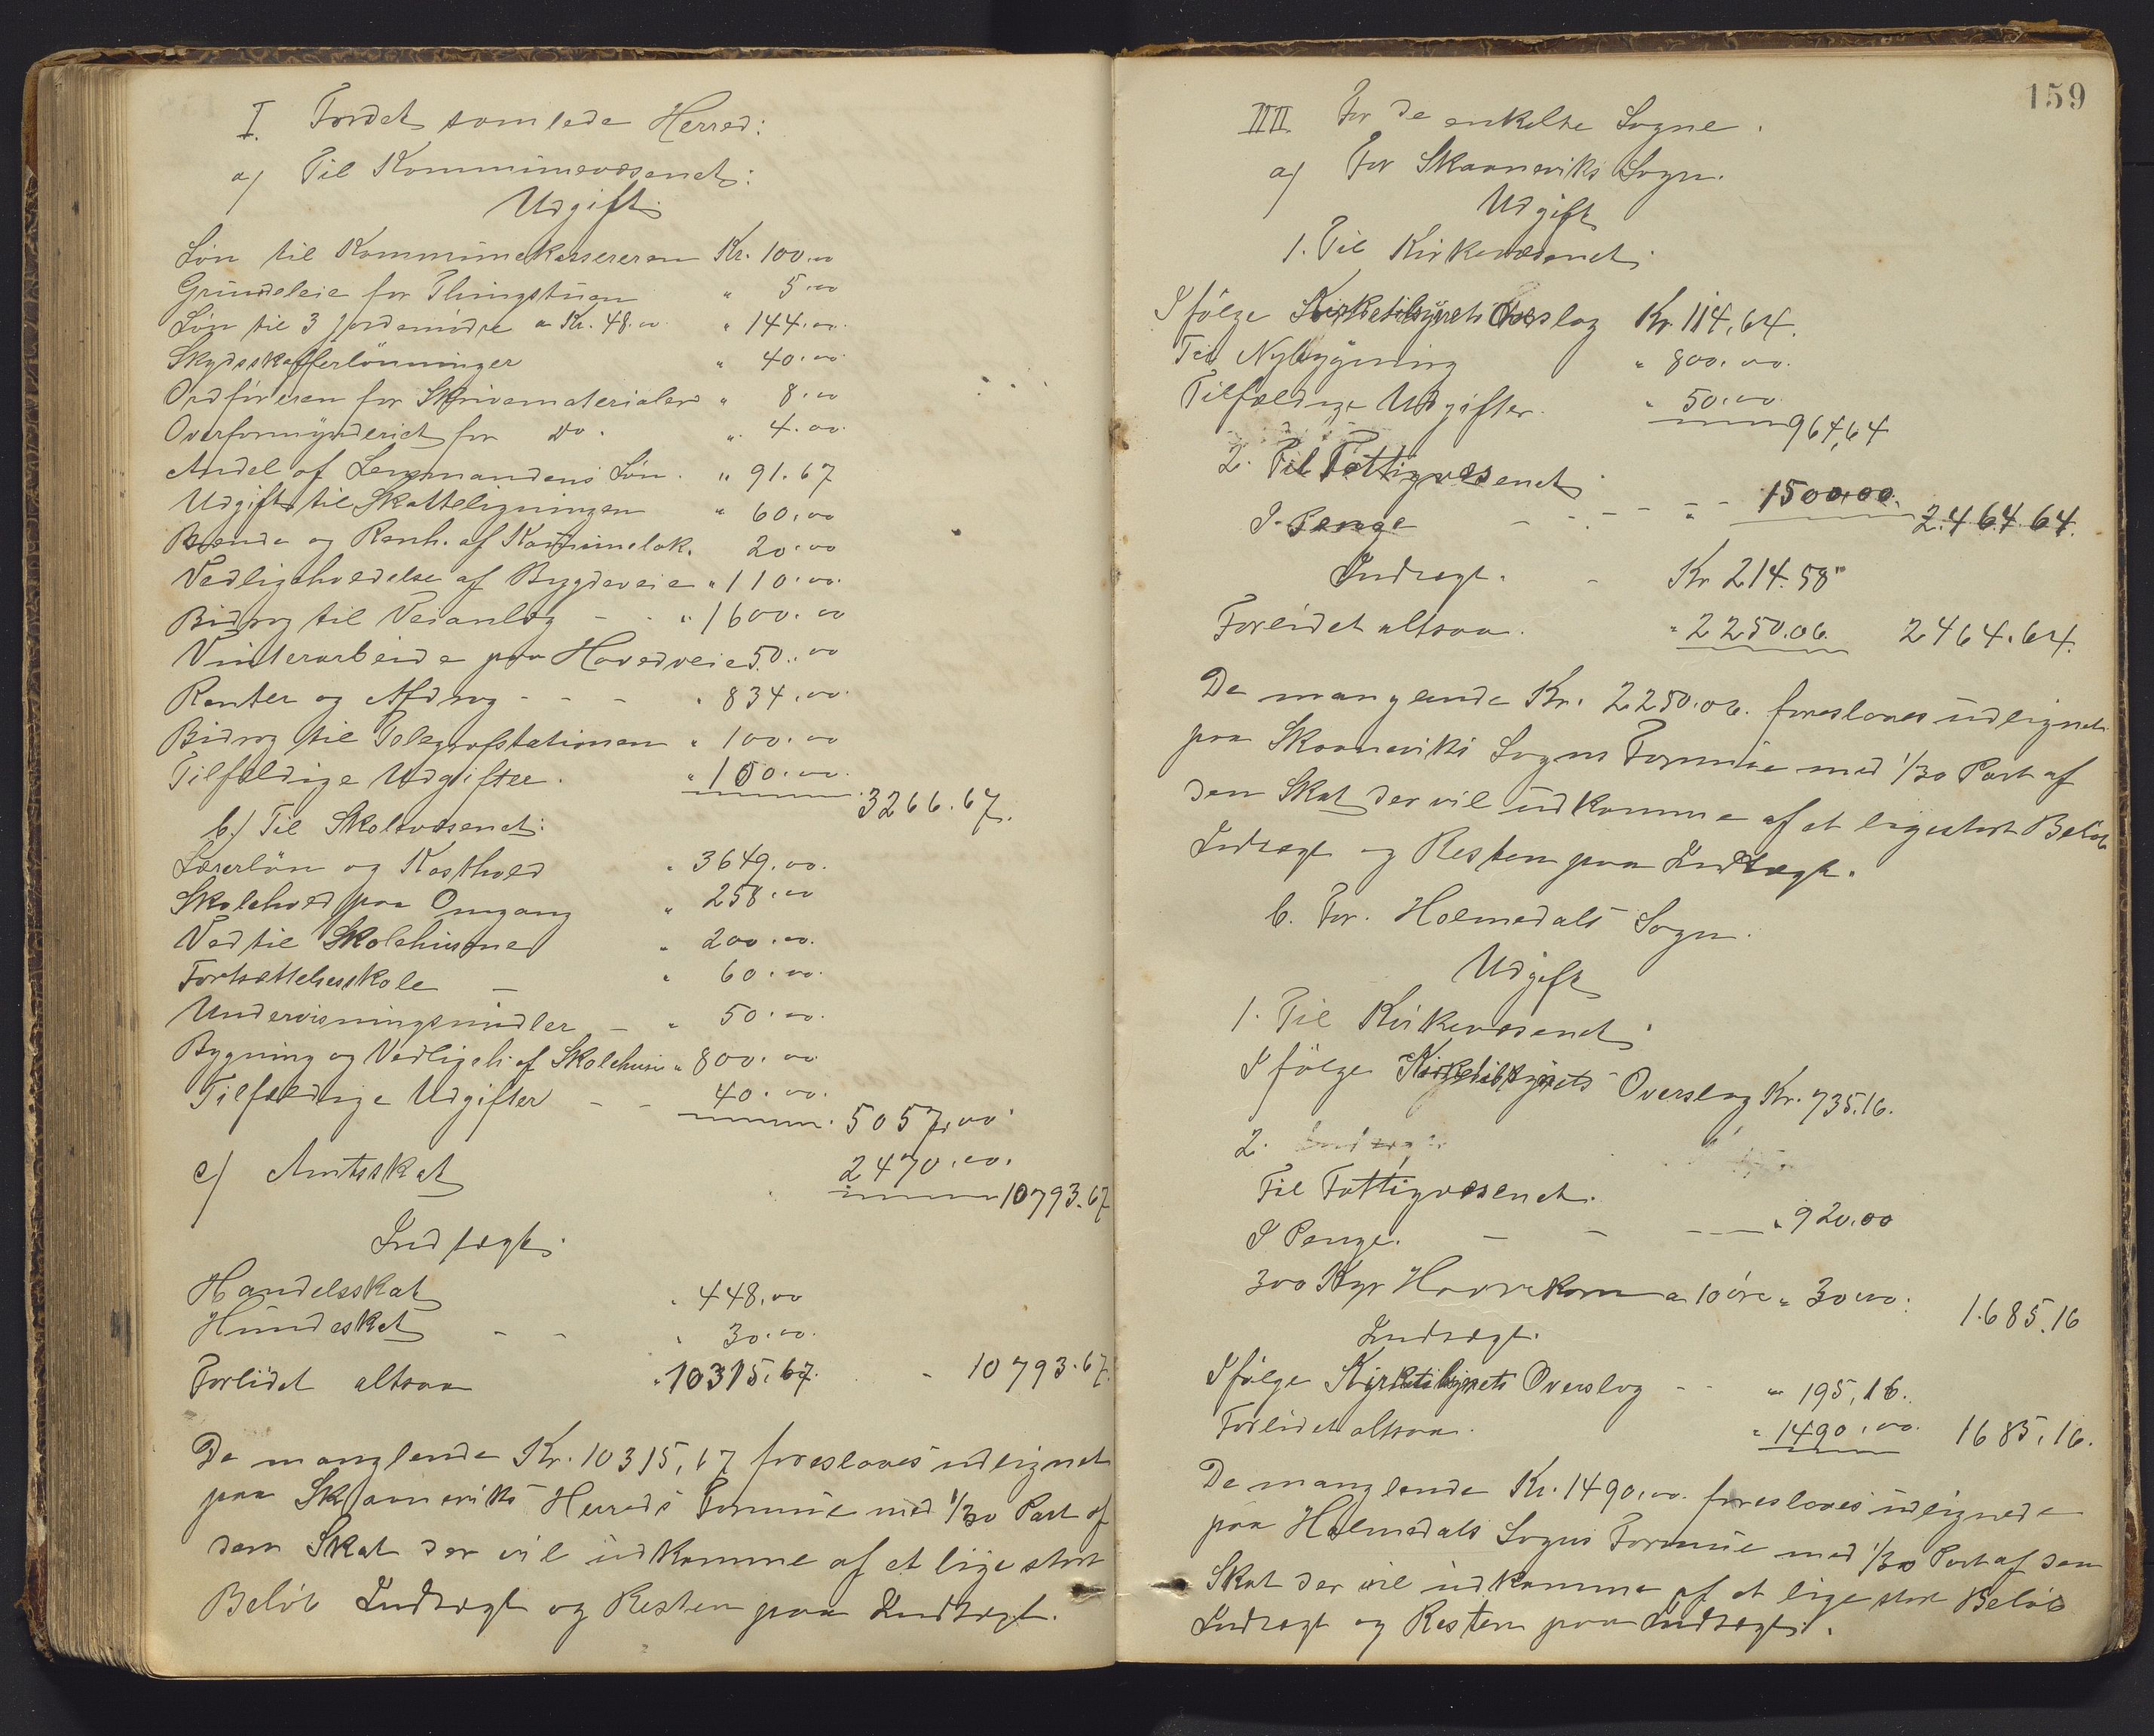 I. Fordet samlede Herred:
a) Til Kommunevæsenet:
Udgift
Løn til Kommunekassereren Kr. 100.00
Grundeleie for Thingstuen " 5.00
Løn til 3 Jordemødre a Kr. 48.00 " 144.00.
Skydsskafferlönninger " 40.00
Ordföreren for Skrivematerialer " 8.00
Overformynderiet for Do. " 4.00.
Andel af Lensmandens Løn. " 91.67
Udgifter til Skatteligningen " 60.00
Brende og Renh. af Kommunelok. 20.00
Vedligeholdelse af Bygdeveie " 110.00.
Bidrag til Veianlæg - - " 1600.00
Vinterarbeide paa Hovedveie 50.00
Renter og Afdrag - - - " 834.00.
Bidrag til Telegrafstationen " 100.00
Tilfældige Udgifter. " 100.00.
3266.67.
b.) Til Skolevæsenet:
Lærerlön og Kosthold " 3649.00.
Skolehold paa Omgang " 258.00
Ved til Skolehusene " 200.00.
Fortsættelsesskole - " 60.00.
Undervisningsmidler - " 50.00.
Bygning og Vedligeh. af Skolehuse " 800.00
Tilfældige Udgifter - - 40.00.
5057.00
c) Amtsskat 2470.00.
10793.67
Indtægt.
Handelsskat " 448.00
Hundeskat - - " 30.00.
Forlidet altsaa " 10315.67. - 10793.67.
De manglende Kr. 10315,67 foreslaaes udlignet
paa Skaaneviks Herreds Formue med 1/30 Part af
den Skat der vil udkomme af et lige stort
Beløb Indtægt og Resten paa Indtægt.
159
II For de enkelte Sogne.
a) For Skaaneviks Sogn.
Udgift
1. Til Kirkevæsenet.
Ifölge Kirketilsynets Overslag Kr. 114,64.
Til Nybygning " 800.00.
Tilfældige Udgifter. " 50.00
964,64
2. Til Fattigvæsenet
I Penge - - - - - " 1500.00. 2.464.64.
Indtægt. - Kr 214.58"
Forlidet altsaa. " 2250.06. 2464.64.
De manglende Kr. 2250.06. foreslaaes udlignet
paa Skaaneviks Sogns Formue med 1/30 Part af
den Skat der vil udkomme af et ligestort Beløb
Indtægt og Resten paa Indtægt.
b. For. Holmedals Sogn.
Udgift
1. Til Kirkevæsenet
Ifölge Kirketilsynets Overslag Kr. 735.16.
2.
Til Fattigvæsenet.
I Penge. - - - - " 920.00
300 Kgr Havrekorn a 10 öre " 30.00. 1.685.16
Indtægt.
Ifölge Kirketilsynets Overslag - - " 195,16.
Forlidet altsaa. " 1490.00. 1685,16.
De manglende Kr. 1490.00. foreslaaes udlignede
paa Holmedals Sogns Formue med 1/30 Part af den
Skat der vil udkomme af et lige stort Beløb
Indtægt og Resten paa Indtægt.